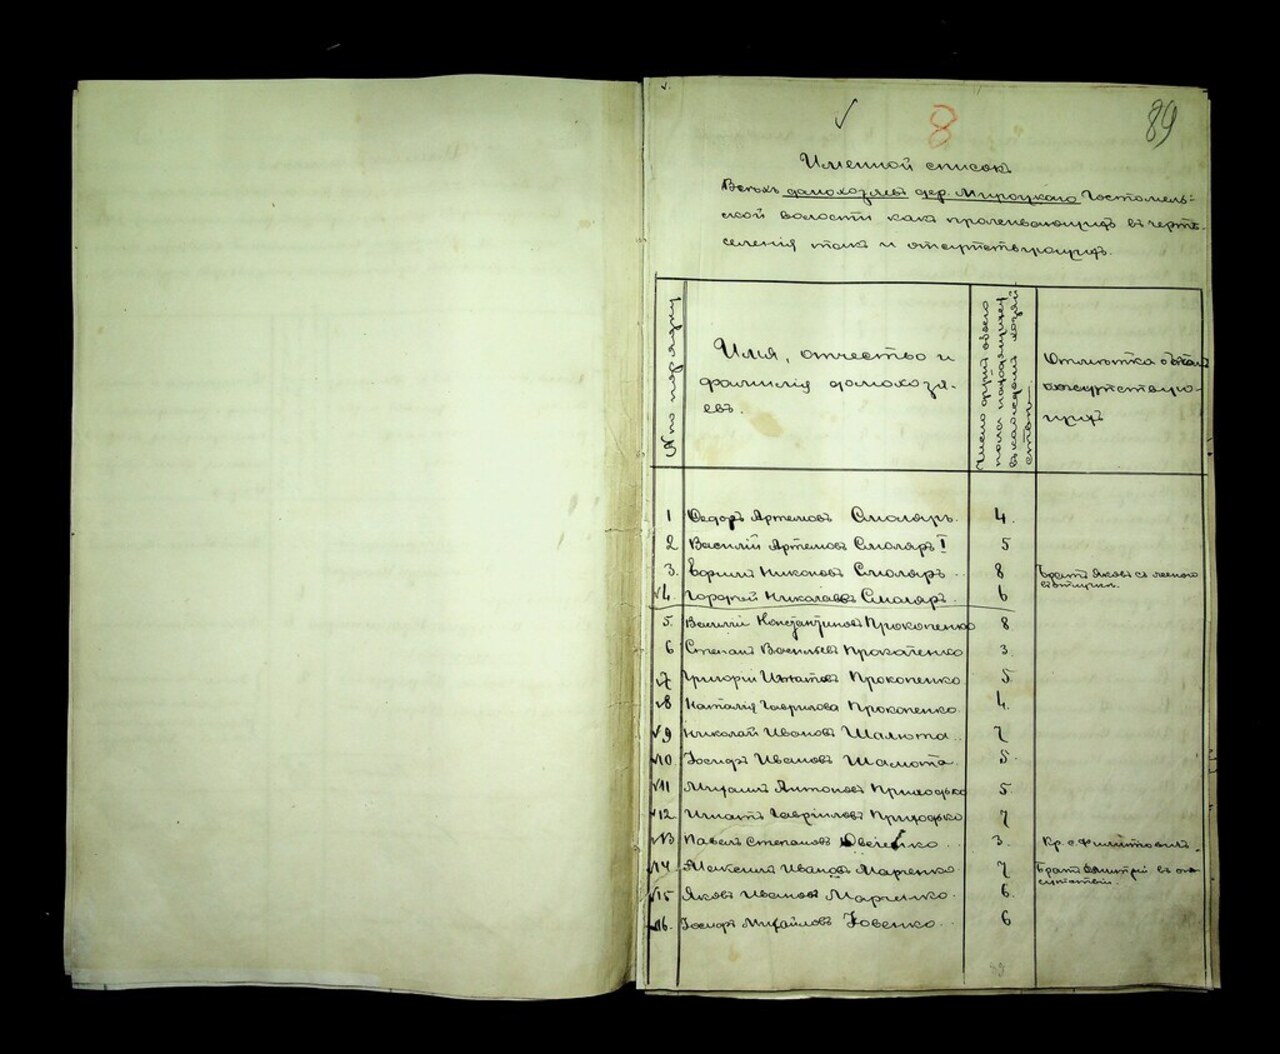 8
89
Именной списокъ
Всѣхъ домохозяевъ дер. Мироцкаго Гостомель-
ской волости какъ проживающихъ въ чертѣ
селенія такъ и отсутствующихъ.
№ по порядку
Имя, отчество и
фамилія домохозя-
евъ.
Число душъ обоего
пола находящихся
въ каждомъ хозяй-
ствѣ
Отмѣтка
отсутствую-
щихъ
1 Федоръ Артемовъ Смоляръ. 4.
2 Василій Артемовъ Смоляръ I 5
3. Никоновъ Смоляръ 8 Братъ Яковъ съ
4. Гордѣй Николаевъ Смоляръ. 6
5. Василій Константиновъ Прокопенко 8
6 Степанъ Васильевъ Прокопенко 3.
7 Григорій Игнатовъ Прокопенко 5.
8 Наталія Гаврилова Прокопенко. 4.
9 Николай Ивановъ Шалюта 7
10 Іосифъ Ивановъ Шалюта 5.
11 Михаилъ Антоновъ Приходько 5.
12 Игнатъ Гавріиловъ Приходько 7
13 Павелъ Степановъ 3. Кр. с. Филиповичъ.
14 Максимъ Ивановъ Марченко 7 Братъ Дмитрій въ
15 Яковъ Ивановъ Марченко. 6.
16. Іосифъ Михайловъ Іовенко. 6
39